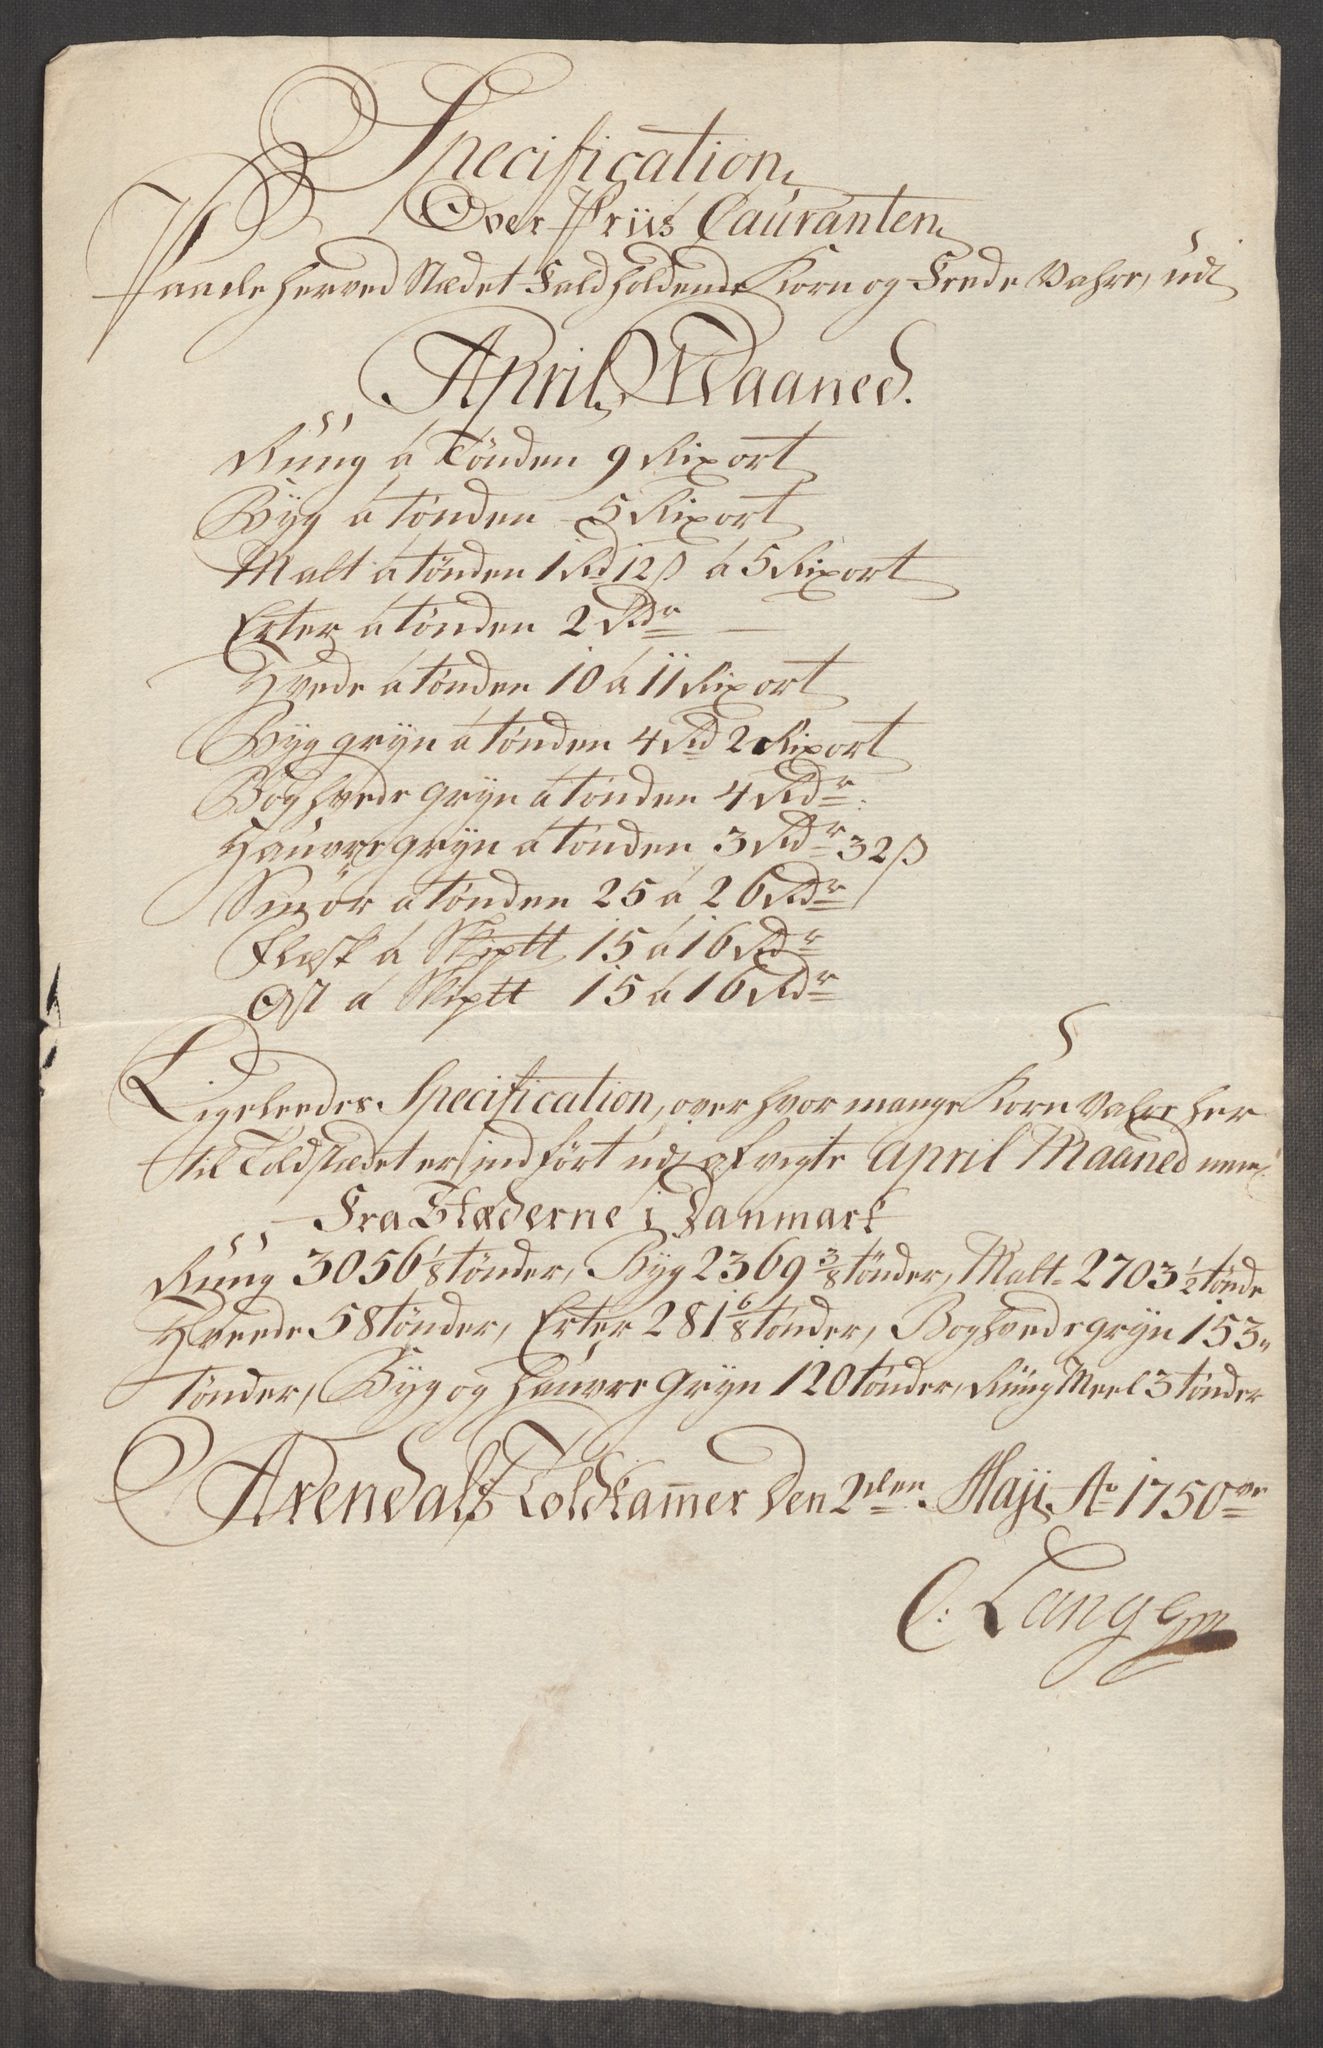 Specification
Over Priis Couranten
Paa de herved Stædet Faldholdende Korn og Fede Vahre, udi
April Maaned.
Rüug á Tønden 9 Rixort
Byg á tønden 5 Rixort
Malt á tønden 1 Rd 12 ß á 5 Rixort
Erter á tønden 2 Rdr
Hvede á tønden 10 á 11 Rixort
Byg gryn á tønden 4 Rd 2 Rixort
Boghvede gryn á tønden 4 Rdr:
Haüvre gryn á tønden 3 Rdr 32 ß
Smör á tønden 25 á 26 Rdr
Flæsk á Skiptt 15 á 16 Rdr
Ost á Skiptt 15 á 16 Rdr
Ligeleedes Specification, over hvor mange Korn Vahre her
til Toldstædet er indført udj afvigte April Maaned nemlig
Fra Stæderne i Danmark
Rüug 3056 1/8 tønder, Byg 2369 3/8 tønder, Malt 2703 1/2 tønde
Hveede 58 tønder, Erter 281 6/8 tønder, Boghvede gryn 153
tønder, Byg og Haüvre Gryn 120 tønder, Rüüg Meel 3 tønder
Arendals Toldkam̄er den 2den Maji Ao 1750
C: Lange